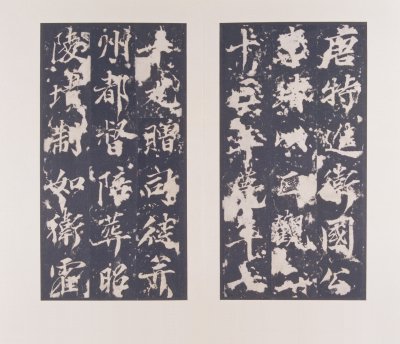 唐特進衛國公
靖以觀
年薨年七
十九贈司徒并
州都督陪葬昭
陵墳制如衛霍